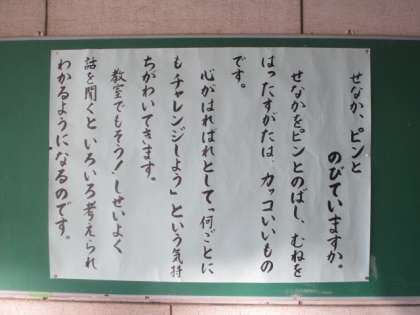 せなか、ピンと
のびていますか。
せなかをピンとのばし、むねを
はったすがたは、カッコいいもの
です。
心がはればれとして「何ごとに
もチャレンジしよう」という気持
ちがわいてきます。
教室でもそう！しせいよく
話を聞くといろいろ考えられ
わかるようになるのです。